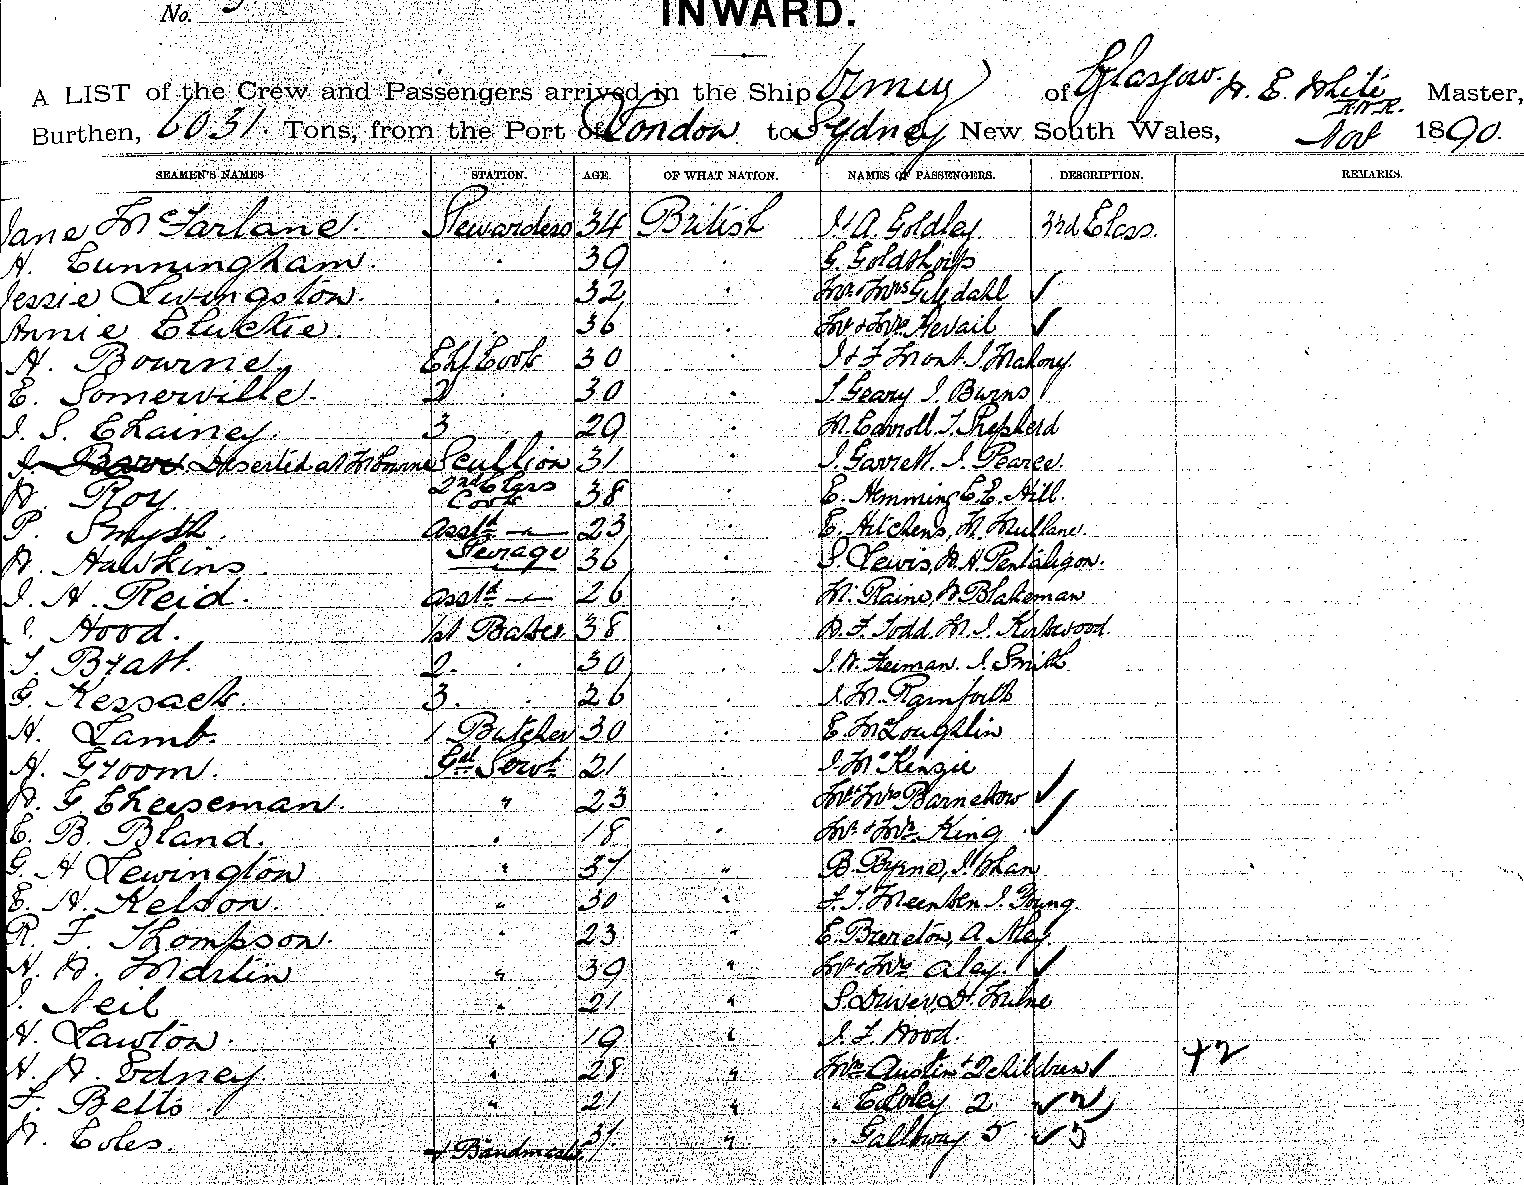 No.
INWARD.
A LIST of the Crew and Passengers arrived in the Ship Ormuz of Glasgow. E. White R.N.R. Master,
Burthen, 6031. Tons, from the Port of London to Sydney New South Wales, Nov 1890.
SEAMEN'S NAMES STATION. AGE. OF WHAT NATION. NAMES OF PASSENGERS. DESCRIPTION. REMARKS.
Jane McFarlane. Stewardess 34 British A. Goldley 3rd Class.
H. Cunningham. . 39 . G. Goldthorp
Jessie Livingston. . 32 . Mr & Mrs ✓
Annie Cluckie. . 36 . Mr & Mrs ✓
H. Bourne. Chf Cook 30 . J & F Mont. J Mahony.
E. Somerville. 2 . 30 . J Geary J. Burns
J. S. Chainey. 3 29 . M. Carroll T. Shepherd
J. Deserted at Scullion 31 . J. Garrett. J. Pearce.
W. Roy. 2nd Class Cook 38 . E. Hemming C E. Hill.
P. Smyth. asst 23 . E. Hitchens, M. Mullane.
W. Hawkins. Steerage 36 . S. Lewis, W. H.
J. H. Reid. asst 26 . M. Raine, W Blakeman
J. Hood. 1st Baker 38 . D. F. Todd. M. J. Kirkwood.
T. Byatt. 2. . 30 . J. W. J. Smith
G. Kessack. 3. . 26 . J. M.
H. Lamb. 1 Butcher 30 . E. McLoughlin
H. Groom. Servt 21 . J McKenzie
W. G. Cheeseman. " 23 . Mr & Mrs ✓
E. B. Bland. " 18 . Mr & Mrs King ✓
G. H Lewington " 37 " B. Byrne, J.
E. H. Kelson. " 30 " J. Young.
R. F. Thompson. " 23 " E. Brereton, A.
H. W. Martin " 39 " Mr & Mrs Aley. ✓
J. Neil " 21 " S. Dr.
H. Lawton. " 19 " J. F. Wood.
H. W. Edney " 28 " Mrs Austin + 2 children ✓ +2
F. Betts " 21 " " 2 ✓ 2
W. Coles. + 31 " " Gallway 5 ✓ 5